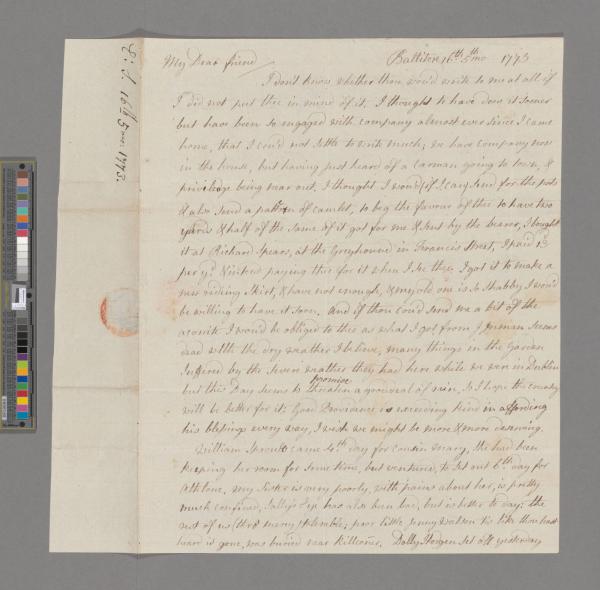 My Dear friend Ballitore 16th 5th mo 1773
I don't know whether thou would write to me at all if
I did not put thee in mind of it, I thought to have done it sooner
but have been so engaged with company almost ever since I came
home, that I could not settle to write much; we have company now
in the house, but having just heard of a carman going to town, &
privilege being near out, I thought I would (if I can) send for the pots
& also send a pattern of camlet, to beg the favour of thee to have two
yards & half of the same of it got for me & sent by the bearer, I bought
it at Richard Spears, at the Greyhound in Francis Street, I paid 13
per yd. & intend paying thee for it when I see thee, I got it to make a
new riding skirt, & have not enough, & my old one is so shabby I would
be willing to have it soon. and if thou could send me a bit of the
aconite I would be obliged to thee as what I got from seems
dead with the dry weather I believe, many things in the Garden
suffered by the severe weather they had here while we were in Dublin
but this Day seems to promise a good deal of rain, so I hope the country
will be better for it; Good Providence is exceeding kind in affording
his blessings every way, I wish we might be more & more deserving.
William came 4th day for cousin Mary, she had been
keeping her room for some time, but ventured to set out 6th day for
Athlone. my Sister is very poorly, with pains about her, is pretty
much confined, Sally's Leg has also been bad, but is better to day; the
rest of us (thro' mercy) tolerable; poor little Jenny Watson tis like thou hast
heard is gone, was buried near Killconer. Dolly set off yesterday
16th 5 mo 1773.